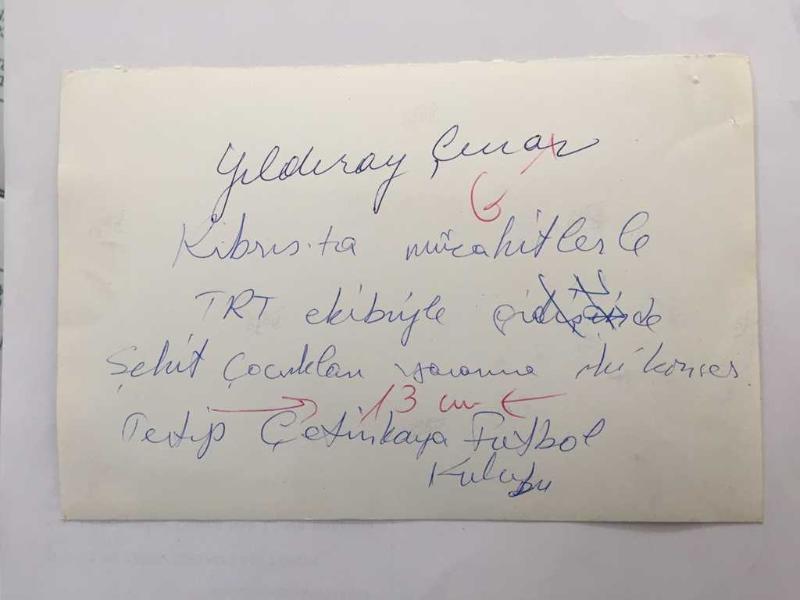 Yıldıray Çınar
6
Kıbrıs.ta mücahitlerle
TRT ekibiyle
Şehit Çocukları yararına iki konser
13 cm
Tertip Çetinkaya Futbol
Kulubu